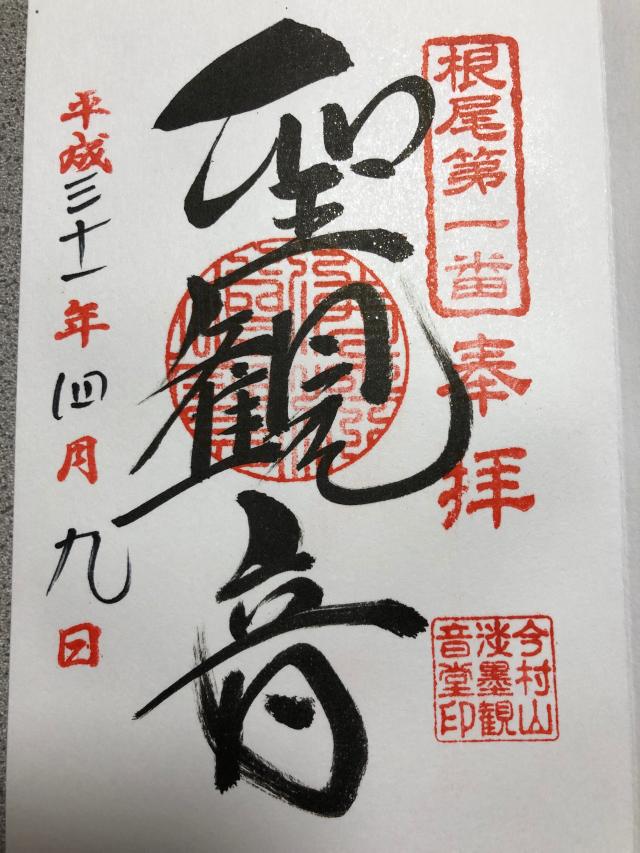 根尾第一番
奉拝
今村山
淡墨観
音堂印
聖観音
平成三十一年四月九日